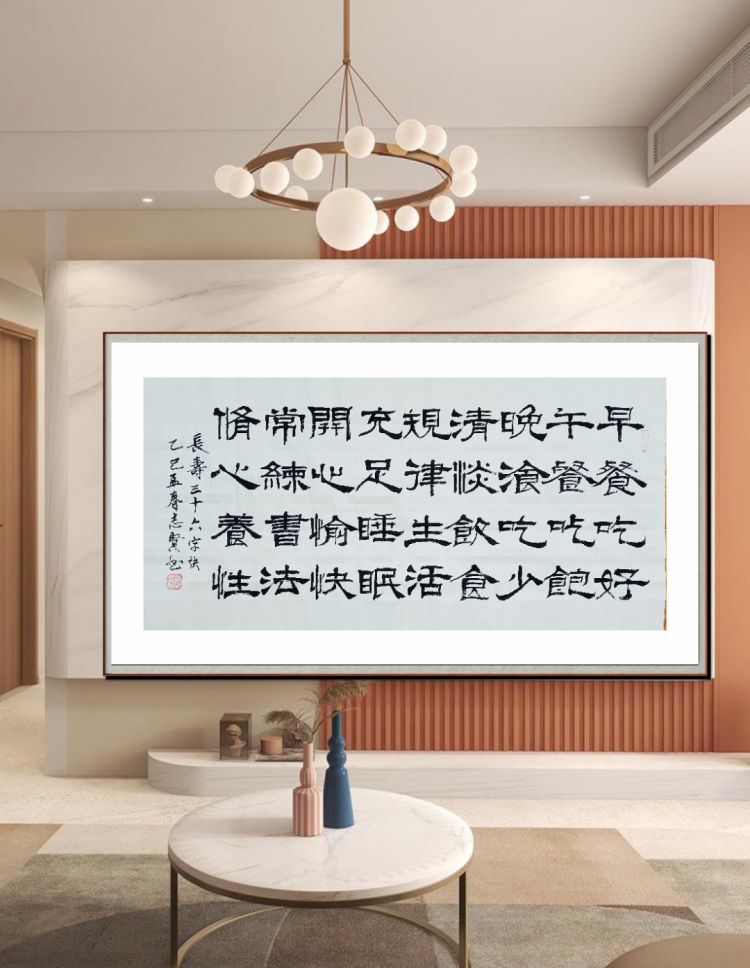 早餐吃好
午餐吃飽
晚湌吃少
清淡飲食
規律生活
充足睡眠
開心愉快
常練書法
脩心養性
長壽三十六字诀
乙巳孟春志賢书